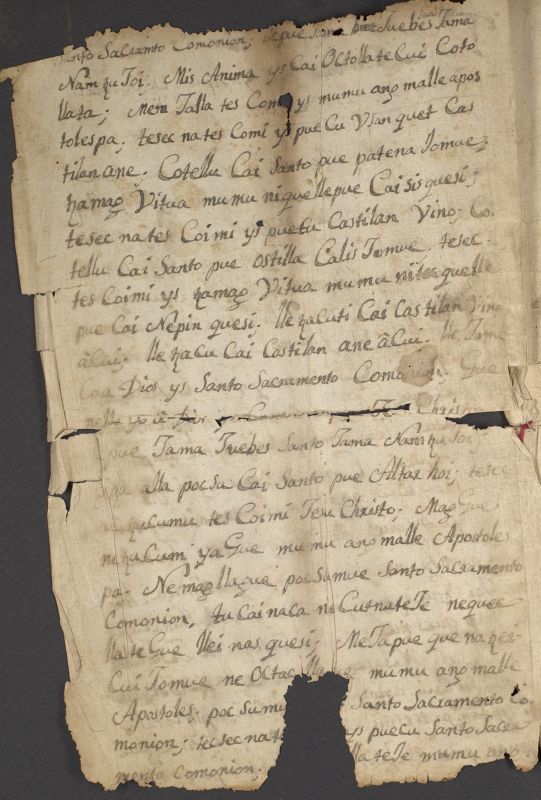 Santo Sacramto Comonion; llepue Jama Juebes Tama
Nam ꜩu Toi; Mis Anima ys Cai Octollate Cui Coto
llata; Mem Talla tes Com ys mumu año malle apos
tolespa; tesec na tes Comi ys pue Cu Vsan quet Cas
tilan ane. Cotellu Cai Santo pue patena Jomue;
ꜩamaꜩ Vitua mumu niquellepue Cai sis quesi;
tesec na tes Coimi ys pue Cu Castilan Vino; Co
tellu Cai Santo pue Ostilla Calis Tomue. tesec
tes Coimi ys ꜩamaꜩ Vitua mumu ni quelle
pue Cai Nepin quesi; lle ꜩaCuti Cai Castilan Vino
âCui; lle ꜩaCu Cai Castilan ane âCui. lle Tama
Coa Dios ys Santo Sacramento Comonion. Que
Christ
pue Tama Juebes Santo Tama Nam ꜩu Toi;
alla pocsu Cai Santo pue Altar hoi; tesec
Cumu tes Coimi Jesu Christo; Maꜩ Gue
Cumi ya Gue mumu año malle Apostoles
pa. Nemaꜩ llaque pocsumue Santo Sacramento
Comonion, tu Cai naca ne Cutnate Te nequee
lla te Gue llei nas quesi; Me Ta pue que na
Cui Tomue ne Octac mumu año malle
Apostoles; pocsumu Santo Sacramento Co
monion; tec sec nat ys pue Cu Santo Sacra
mento Comonion; lla te Te mumu año